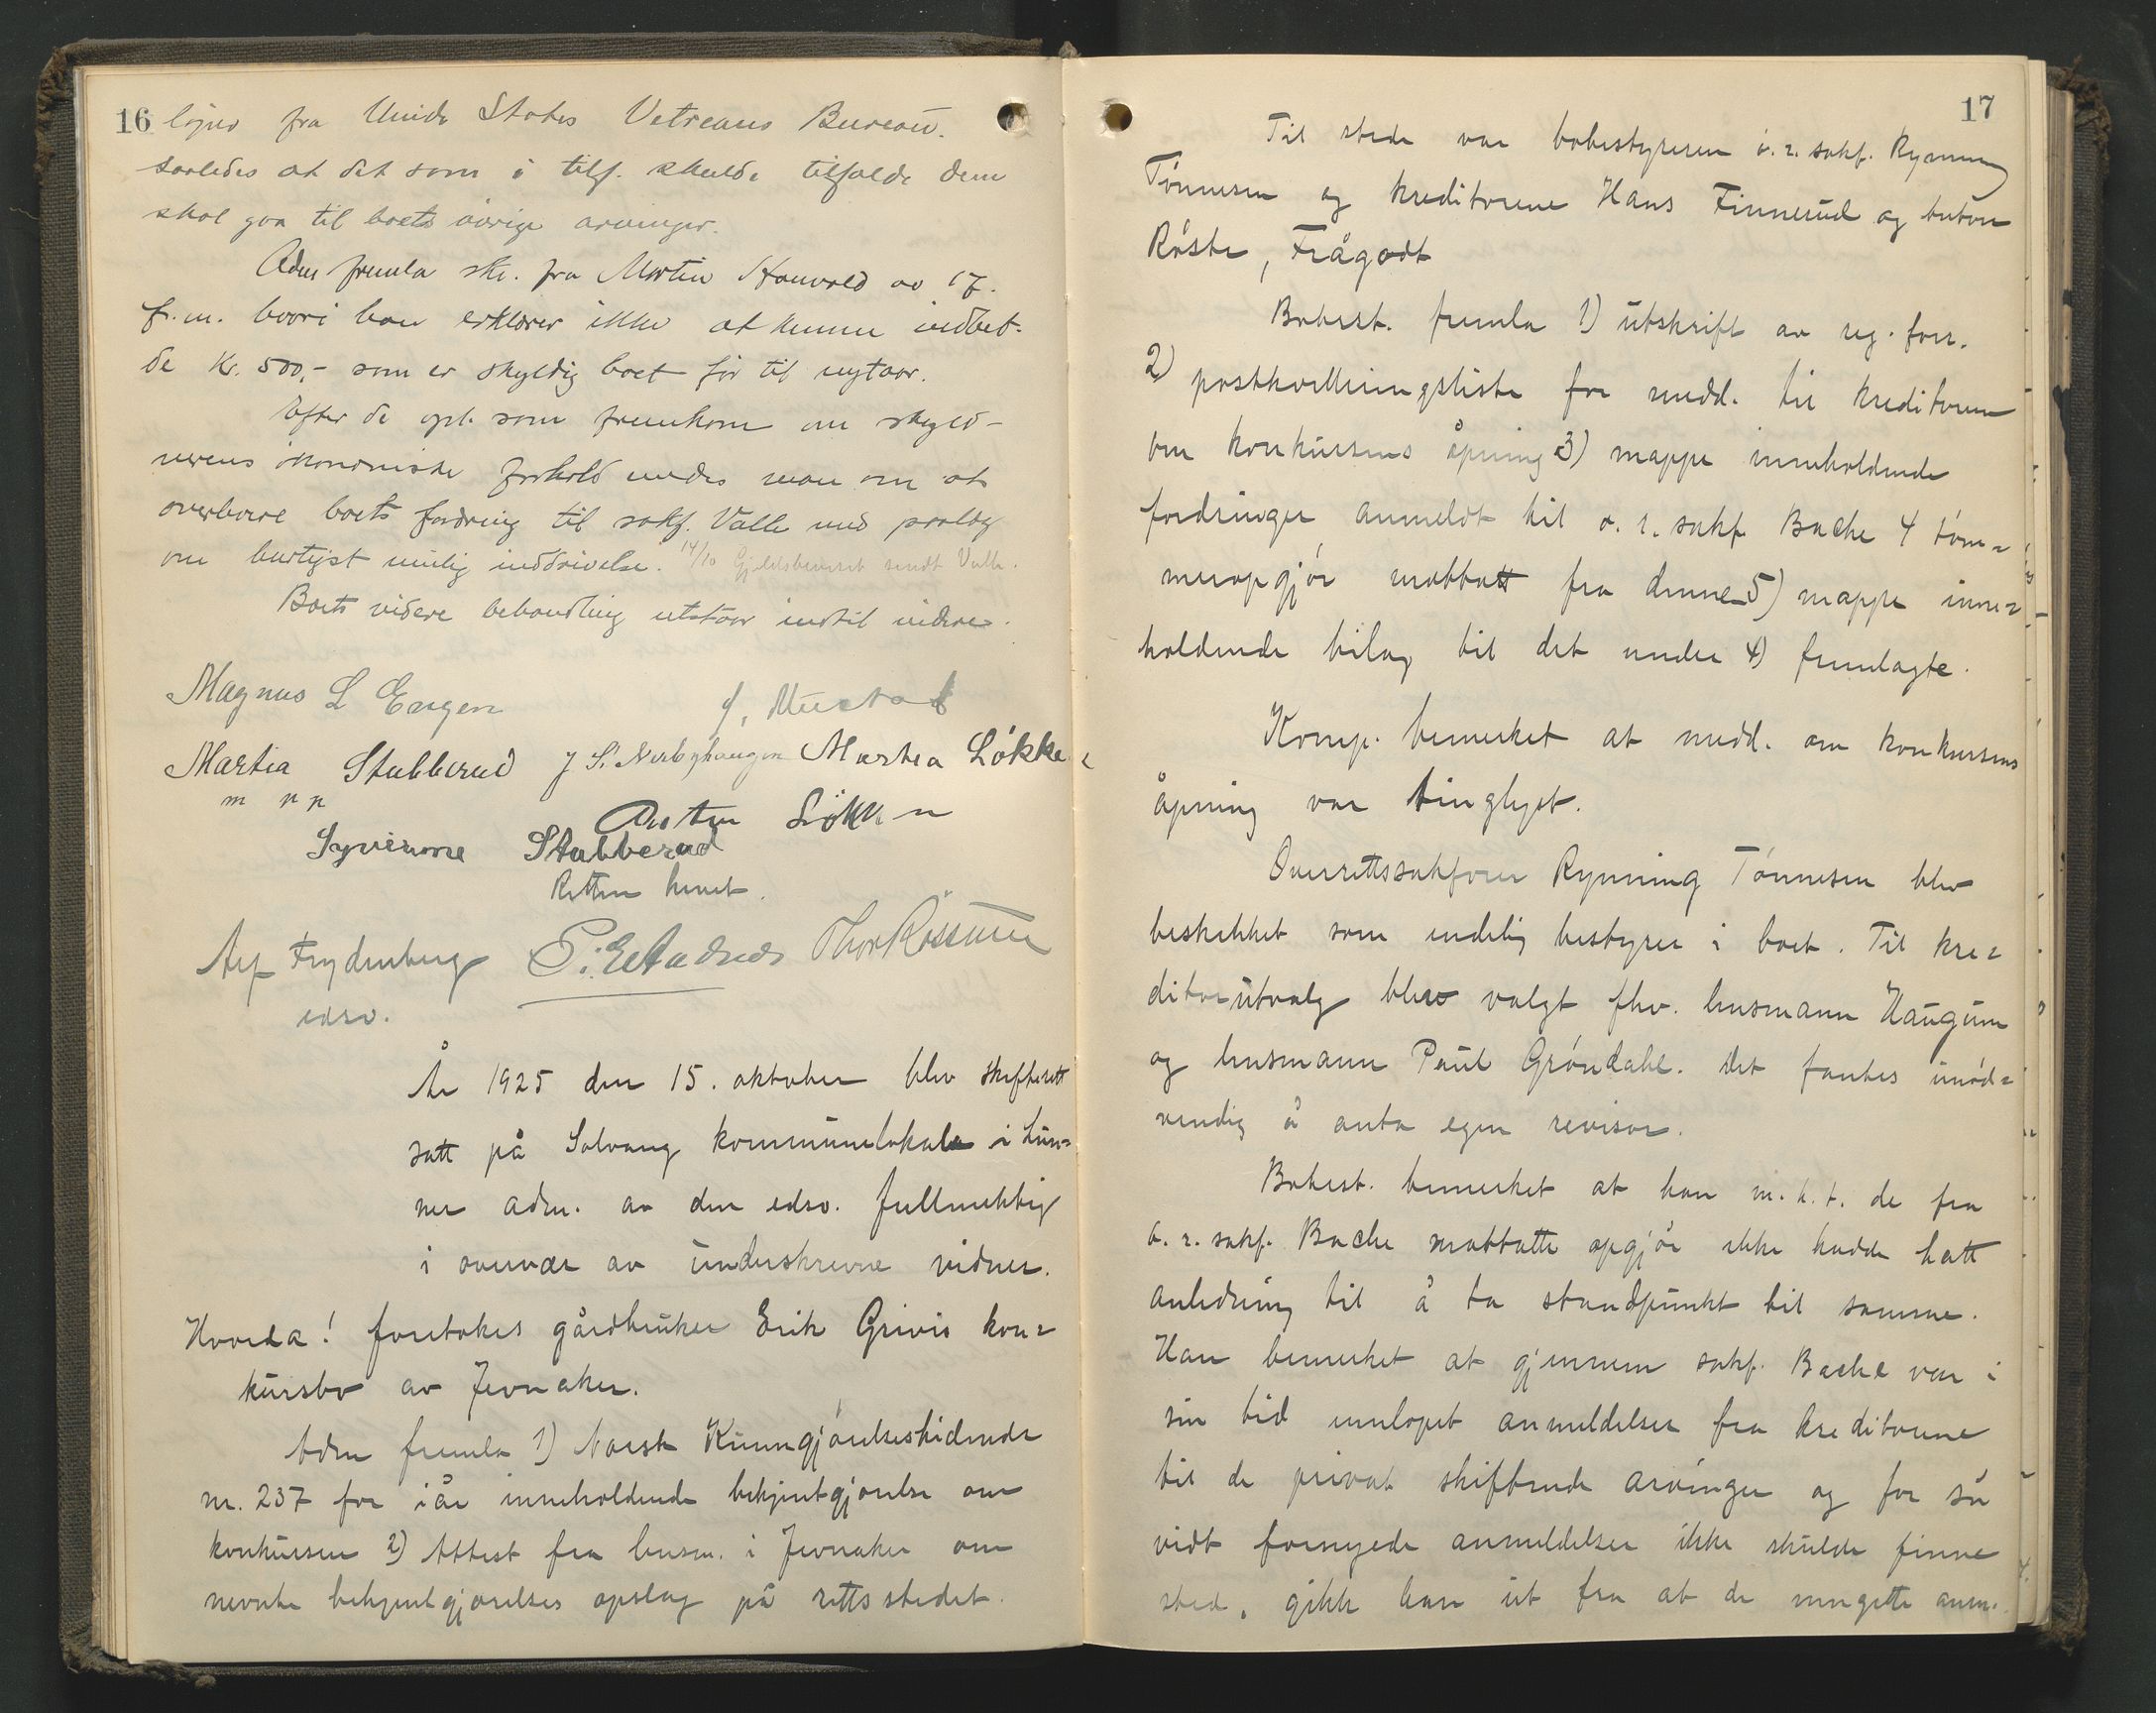 16
fra Unide States Vetreans Bureau.
saaledes at det som i tilf. skulde tilfalde dem
skal gaa til boets øvrige arvinger.
Adm fremla skr. fra Martin Hauvald av 17.
f.m. hvori han erklærer ikke at kunne indbet-
de Kr. 500,- som er skyldig boet før til nytaar.
Efter de opl. som fremkom om skyld-
nerens økonomiske forhold enedes man om at
overlevere boets fordring til sakf. Valle med paalæg
om hurtigst mulig inddrivelse. 14/10 Gjeldsbeviset sendt Valle.
Boets videre behandling utstaar indtil videre.
Magnus L Engen
J. Mustad
Martia Stubberud J S. Nerbyhaugen Martea Løkken
m p p
Anton Løkken
Syverine Stubberud
Retten hevet.
Alf Frydenberg Thor Røssum
edsv.
År 1925 den 15. oktober blev skifterett
satt på Solvang kommunelokale i Lun=
ner adm. av den edsv. fullmektig
i overvær av underskrevne vidner.
Hvorda! foretokes gårdbruker Erik Grivis kon=
kursbo av Jevnaker.
Adm fremla 1) Norsk Kunngjørelsestidende
nr. 237 for iår inneholdende bekjentgjørelse om
konkursen 2) Attest fra lensm. i Jevnaker om
nevnte bekjentgjørelses opslag på rettsstedet.
17
Til stede var bobestyreren o.r.sakf. Rynning
Tønnesen og kreditorene Hans Finnerud og Anton
Røste,
Bobest. fremla 1) utskrift av reg. forr.
2) postkvitteringsliste for medd. til kreditorene
om konkursens åpning 3) mappe inneholdende
fordringer anmeldt til o.r.sakf. Bache 4 tøm=
meropgjør mottatt fra denne 5) mappe inne=
holdende bilag til det under 4) fremlagte.
Komp. bemerket at medd. om konkursens
åpning var tinglyst.
Overrettssakfører Rynning Tønnesen blev
beskikket som endelig bestyrer i boet. Til kre=
ditorutvalg blev valgt fhv. lensmann Haugum
og lensmann Paul Grøndahl. Det fantes unød=
vendig å anta egen revisor.
Bobest. bemerket at han m.h.t. de fra
o.r.sakf. Bache mottatte opgjør ikke hadde hatt
anledning til å ta standpunkt til samme.
Han bemerket at gjennem sakf. Bache var i
sin tid innløpet anmeldelser fra kreditorene
til de privat skiftende arvinger og for så
vidt fornyede anmeldelser ikke skulde finne
sted, gikk han ut fra at de inngitte anm.